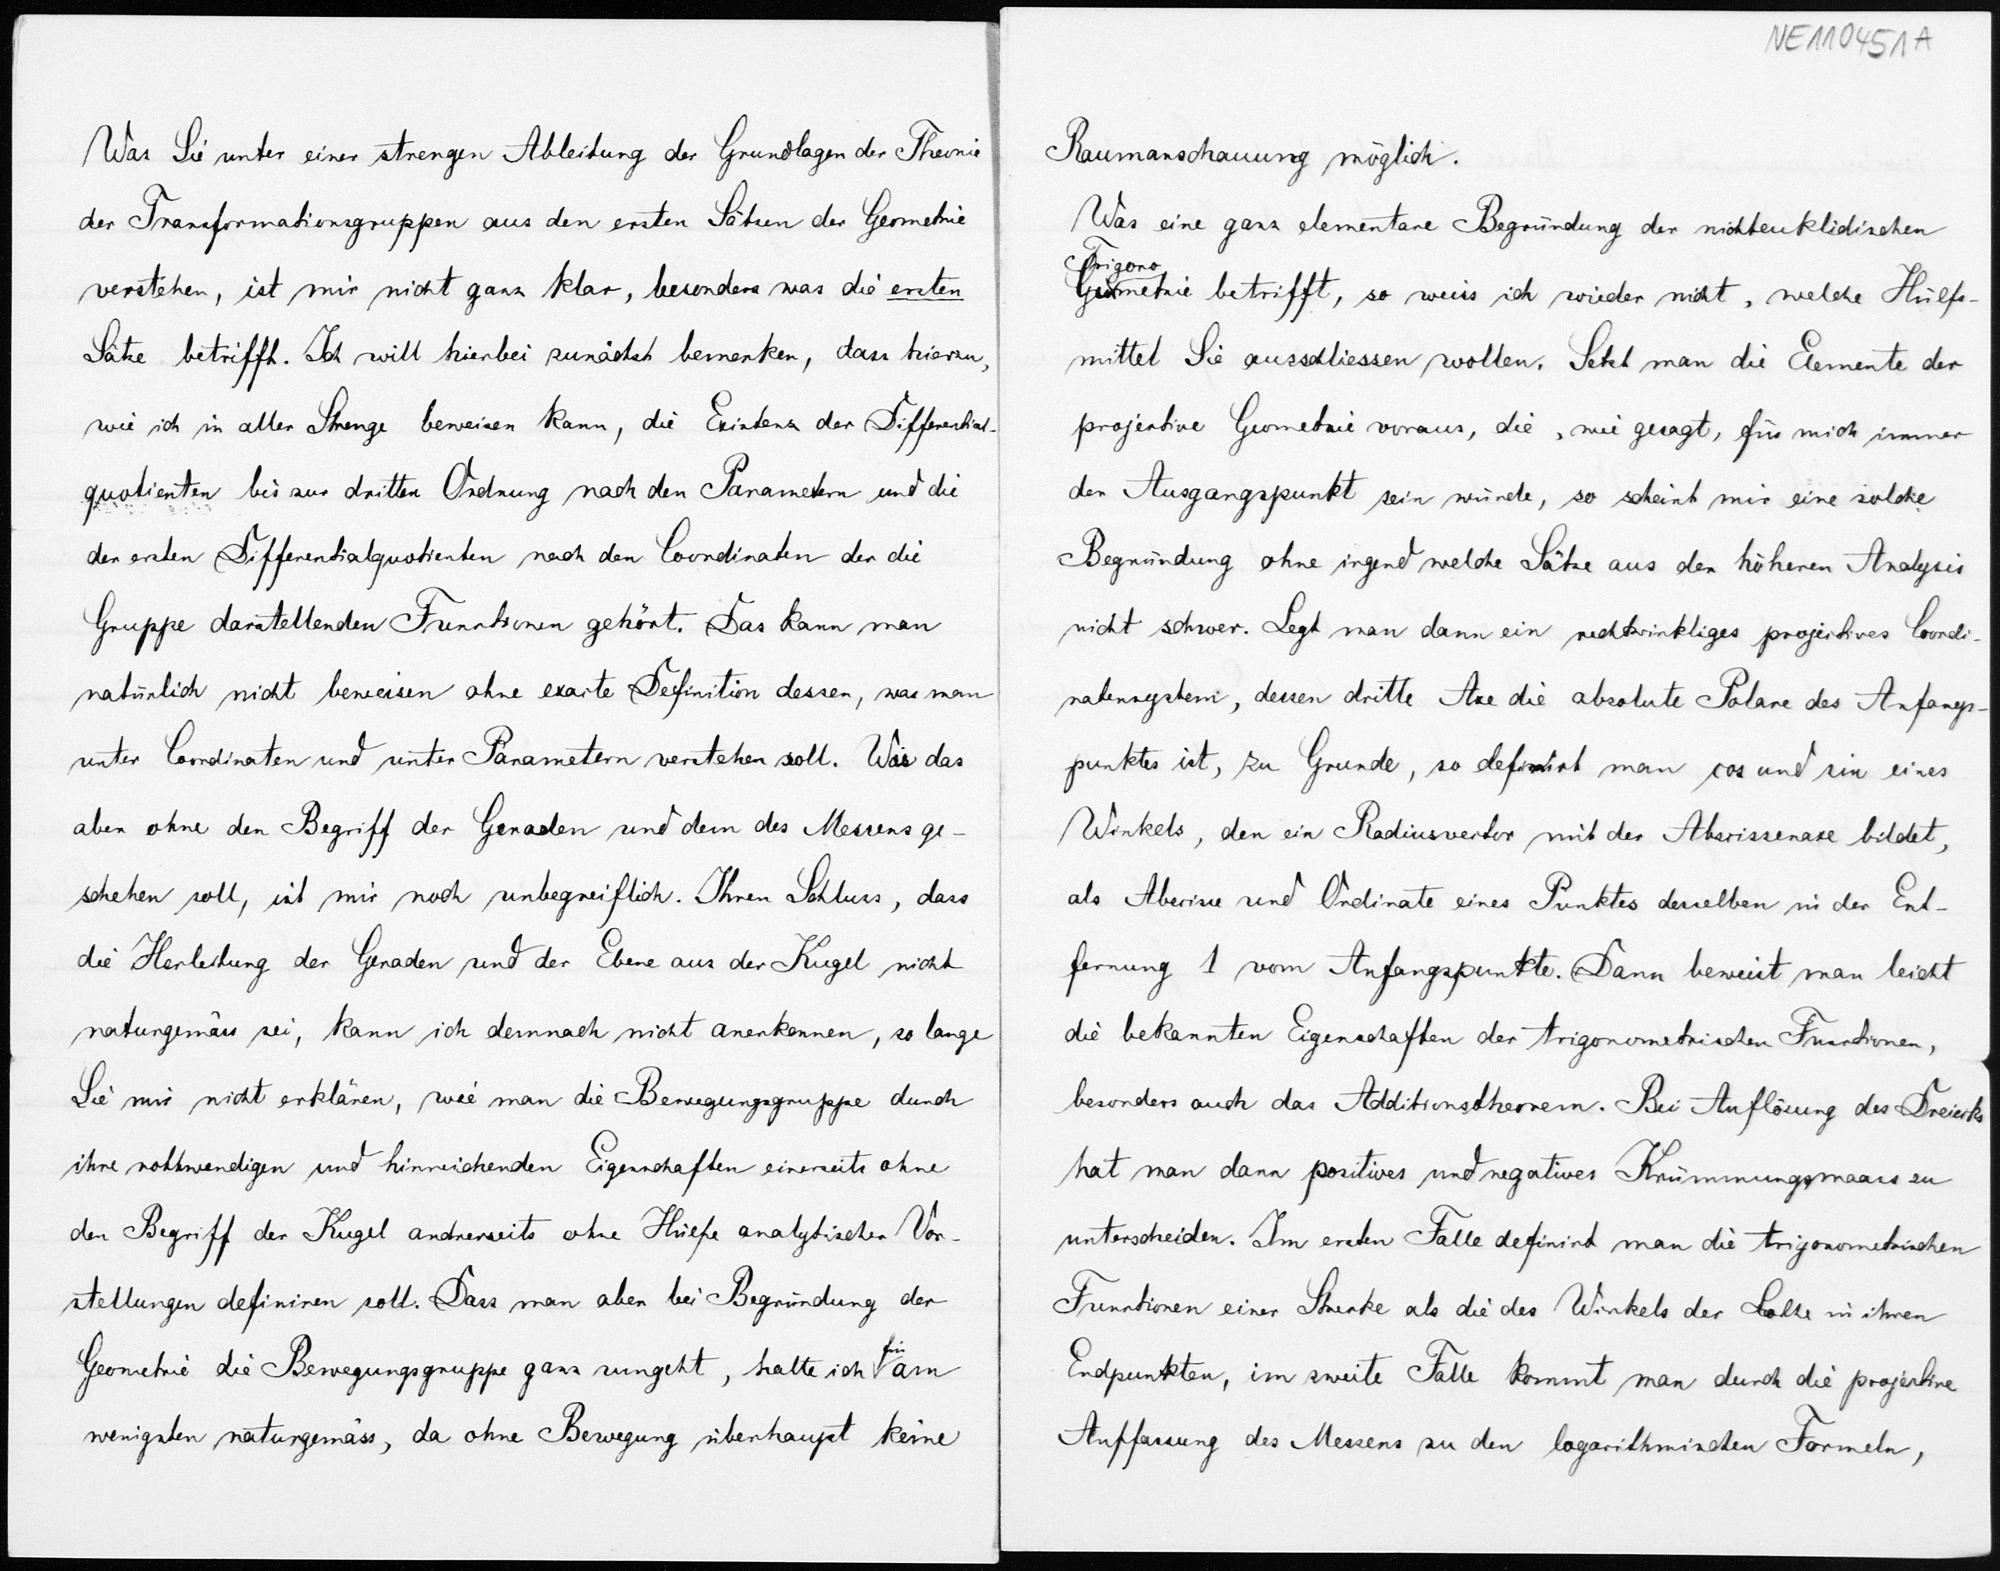 Was Sie unter einer strengen Ableitung der Grundlagen der Theorie
der Transformationsgruppen aus den ersten Sätzen der Geometrie
verstehen, ist mir nicht ganz klar, besonders was die ersten
Sätze betrifft. Ich will hierbei zunächst bemerken, dass hierzu,
wie ich in aller Strenge beweisen kann, die Existenz der Differential-
quotienten bis zur dritten Ordnung nach den Parametern und die
der ersten Differentialquotienten nach den Coordinaten der die
Gruppe darstellenden Functionen gehört. Das kann man
natürlich nicht beweisen ohne exacte Definition dessen, was man
unter Coordinaten und unter Parametern verstehen soll. Wie das
aber ohne den Begriff der Geraden und dem des Messens ge-
schehen soll, ist mir noch unbegreiflich. Ihren Schluss, dass
die Herleitung der Geraden und der Ebene aus der Kugel nicht
naturgemäss sei, kann ich demnach nicht anerkennen, so lange
Sie mir nicht erklären, wie man die Bewegungsgruppe durch
ihre nothwendigen und hinreichenden Eigenschaften einerseits ohne
den Begriff der Kugel andrerseits ohne Hülfe analytischer Vor-
stellungen definiren soll. Dass man aber bei Begründung der
Geometrie die Bewegungsgruppe ganz umgeht, halte ich für am
wenigsten naturgemäss, da ohne Bewegung überhaupt keine
NE110451A
Raumanschauung möglich.
Was eine ganz elementare Begründung der nichteuklidischen
Trigono
metrie betrifft, so weiss ich wieder nicht, welche Hülfs-
mittel Sie ausschliessen wollen. Setzt man die Elemente der
projective Geometrie voraus, die, wie gesagt, für mich immer
der Ausgangspunkt sein würde, so scheint mir eine solche
Begründung ohne irgend welche Sätze aus der höheren Analysis
nicht schwer. Legt man dann ein rechtwinkliges projectives Coordi-
natensystem, dessen dritte Axe die absolute Polare des Anfangs-
punktes ist, zu Grunde, so definirt man cos und sin eines
Winkels, den ein Radiusvector mit der Abscissenaxe bildet,
als Abscisse und Ordinate eines Punktes desselben in der Ent-
fernung 1 vom Anfangspunkte. Dann beweist man leicht
die bekannten Eigenschaften der trigonometrischen Functionen,
besonders auch das Additionstheorem. Bei Auflösung des Dreiecks
hat man dann positives und negatives Krümmungsmaass zu
unterscheiden. Im ersten Falle definirt man die trigonometrischen
Functionen einer Strecke als die des Winkels der Lothe in ihren
Endpunkten, im zweite Falle kommt man durch die projective
Auffassung des Messens zu den logarithmischen Formeln,